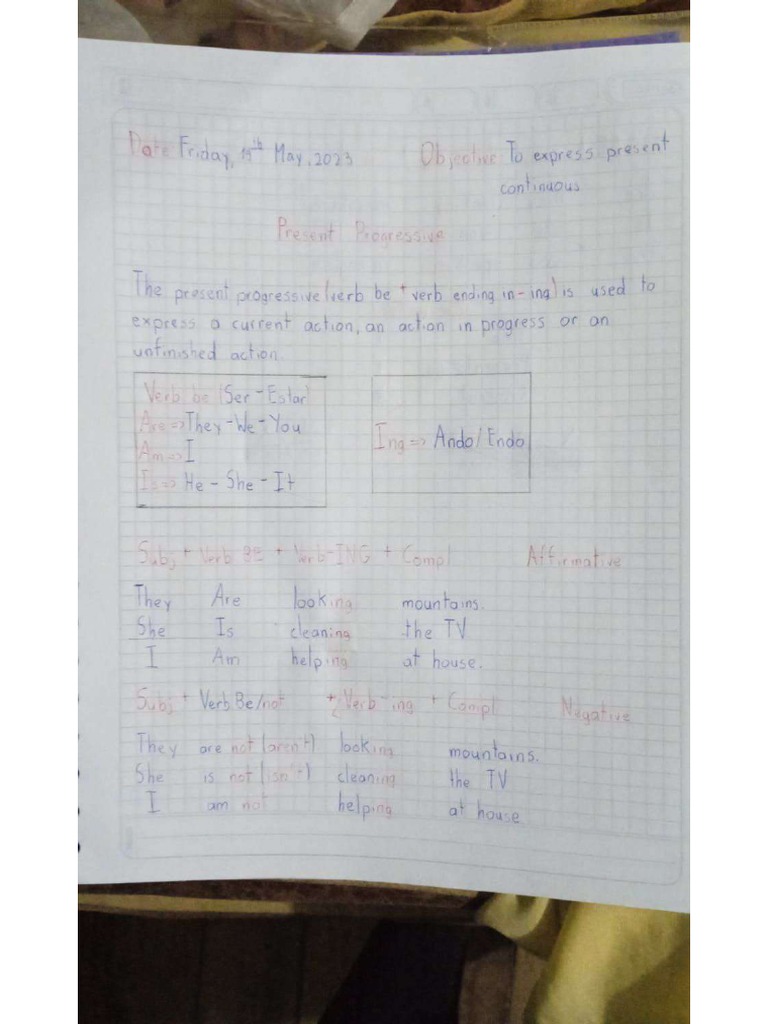 Date Friday, 19th May, 2023 Objective To express present
continuous
Present Progressive
The present progressive (verb be + verb ending in -ing) is used to
express a current action, an action in progress or an
unfinished action.
Verb be (Ser - Estar)
Are => They - We - You
Am => I
Is => He - She - It
Ing => Ando / Endo
Subj + Verb Be + Verb-ING + Compl Affirmative
They Are looking mountains.
She Is cleaning the TV
I Am helping at house.
Subj + Verb Be/not + Verb -ing + Compl Negative
They are not (aren't) looking mountains.
She is not (isn't) cleaning the TV
I am not helping at house